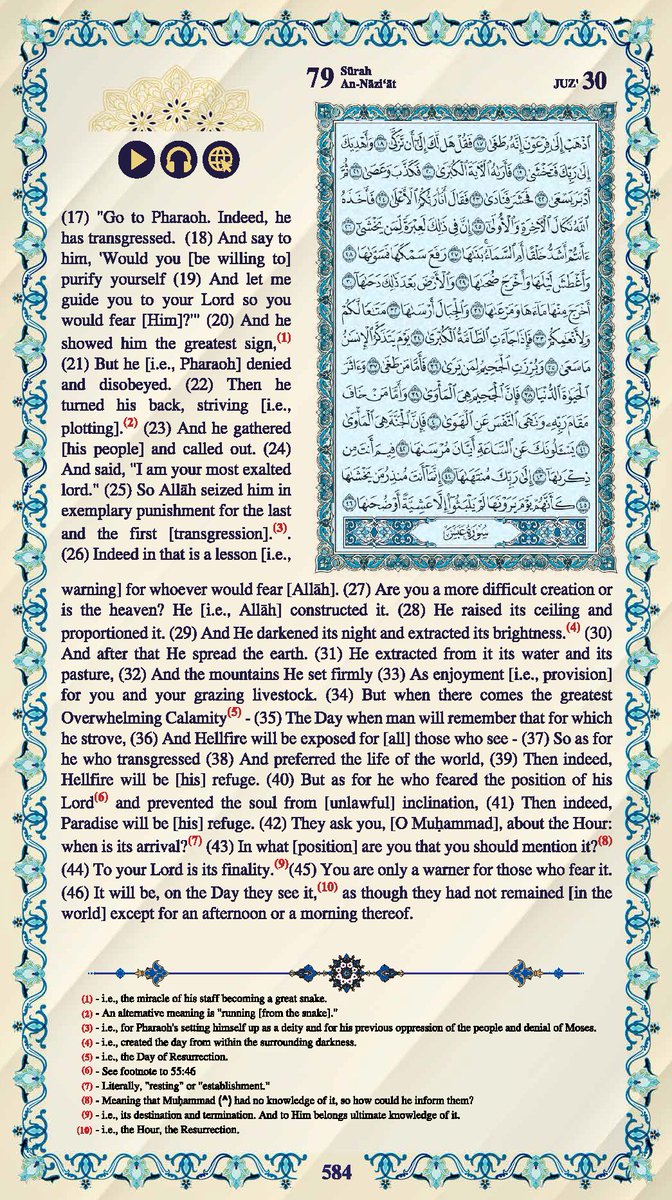 79 Sūrah An-Nāzi'āt
JUZ' 30
ٱذۡهَبۡ إِلَىٰ فِرۡعَوۡنَ إِنَّهُۥ طَغَىٰ ١٧ فَقُلۡ هَل لَّكَ إِلَىٰٓ أَن تَزَكَّىٰ ١٨ وَأَهۡدِيَكَ
إِلَىٰ رَبِّكَ فَتَخۡشَىٰ ١٩ فَأَرَىٰهُ ٱلۡأٓيَةَ ٱلۡكُبۡرَىٰ ٢٠ فَكَذَّبَ وَعَصَىٰ ٢١ ثُمَّ
أَدۡبَرَ يَسۡعَىٰ ٢٢ فَحَشَرَ فَنَادَىٰ ٢٣ فَقَالَ أَنَا۠ رَبُّكُمُ ٱلۡأَعۡلَىٰ ٢٤ فَأَخَذَهُ
ٱللَّهُ نَكَالَ ٱلۡأٓخِرَةِ وَٱلۡأُولَىٰٓ ٢٥ إِنَّ فِي ذَٰلِكَ لَعِبۡرَةٗ لِّمَن يَخۡشَىٰٓ ٢٦
ءَأَنتُمۡ أَشَدُّ خَلۡقًا أَمِ ٱلسَّمَآءُۚ بَنَىٰهَا ٢٧ رَفَعَ سَمۡكَهَا فَسَوَّىٰهَا ٢٨
وَأَغۡطَشَ لَيۡلَهَا وَأَخۡرَجَ ضُحَىٰهَا ٢٩ وَٱلۡأَرۡضَ بَعۡدَ ذَٰلِكَ دَحَىٰهَآ ٣٠
أَخۡرَجَ مِنۡهَا مَآءَهَا وَمَرۡعَىٰهَا ٣١ وَٱلۡجِبَالَ أَرۡسَىٰهَا ٣٢ مَتَٰعٗا لَّكُمۡ
وَلِأَنۡعَٰمِكُمۡ ٣٣ فَإِذَا جَآءَتِ ٱلطَّآمَّةُ ٱلۡكُبۡرَىٰ ٣٤ يَوۡمَ يَتَذَكَّرُ ٱلۡإِنسَٰنُ
مَا سَعَىٰ ٣٥ وَبُرِّزَتِ ٱلۡجَحِيمُ لِمَن يَرَىٰ ٣٦ فَأَمَّا مَن طَغَىٰ ٣٧ وَءَاثَرَ
ٱلۡحَيَوٰةَ ٱلدُّنۡيَا ٣٨ فَإِنَّ ٱلۡجَحِيمَ هِيَ ٱلۡمَأۡوَىٰ ٣٩ وَأَمَّا مَنۡ خَافَ
مَقَامَ رَبِّهِۦ وَنَهَى ٱلنَّفۡسَ عَنِ ٱلۡهَوَىٰ ٤٠ فَإِنَّ ٱلۡجَنَّةَ هِيَ ٱلۡمَأۡوَىٰ
٤١ يَسۡـَٔلُونَكَ عَنِ ٱلسَّاعَةِ أَيَّانَ مُرۡسَىٰهَا ٤٢ فِيمَ أَنتَ مِن
ذِكۡرَىٰهَآ ٤٣ إِلَىٰ رَبِّكَ مُنتَهَىٰهَآ ٤٤ إِنَّمَآ أَنتَ مُنذِرُ مَن يَخۡشَىٰهَا
٤٥ كَأَنَّهُمۡ يَوۡمَ يَرَوۡنَهَا لَمۡ يَلۡبَثُوٓاْ إِلَّا عَشِيَّةً أَوۡ ضُحَىٰهَا ٤٦
سُورَةُ عَبَسَ
(17) "Go to Pharaoh. Indeed, he
has transgressed. (18) And say to
him, 'Would you [be willing to]
purify yourself (19) And let me
guide you to your Lord so you
would fear [Him]?'" (20) And he
showed him the greatest sign,(1)
(21) But he [i.e., Pharaoh] denied
and disobeyed. (22) Then he
turned his back, striving [i.e.,
plotting].(2) (23) And he gathered
[his people] and called out. (24)
And said, "I am your most exalted
lord." (25) So Allāh seized him in
exemplary punishment for the last
and the first [transgression].(3).
(26) Indeed in that is a lesson [i.e.,
warning] for whoever would fear [Allāh]. (27) Are you a more difficult creation or
is the heaven? He [i.e., Allāh] constructed it. (28) He raised its ceiling and
proportioned it. (29) And He darkened its night and extracted its brightness.(4) (30)
And after that He spread the earth. (31) He extracted from it its water and its
pasture, (32) And the mountains He set firmly (33) As enjoyment [i.e., provision]
for you and your grazing livestock. (34) But when there comes the greatest
Overwhelming Calamity(5) - (35) The Day when man will remember that for which
he strove, (36) And Hellfire will be exposed for [all] those who see - (37) So as for
he who transgressed (38) And preferred the life of the world, (39) Then indeed,
Hellfire will be [his] refuge. (40) But as for he who feared the position of his
Lord(6) and prevented the soul from [unlawful] inclination, (41) Then indeed,
Paradise will be [his] refuge. (42) They ask you, [O Muḥammad], about the Hour:
when is its arrival?(7) (43) In what [position] are you that you should mention it?(8)
(44) To your Lord is its finality.(9)(45) You are only a warner for those who fear it.
(46) It will be, on the Day they see it,(10) as though they had not remained [in the
world] except for an afternoon or a morning thereof.
(1) - i.e., the miracle of his staff becoming a great snake.
(2) - An alternative meaning is "running [from the snake]."
(3) - i.e., for Pharaoh's setting himself up as a deity and for his previous oppression of the people and denial of Moses.
(4) - i.e., created the day from within the surrounding darkness.
(5) - i.e., the Day of Resurrection.
(6) - See footnote to 55:46
(7) - Literally, "resting" or "establishment."
(8) - Meaning that Muḥammad (^) had no knowledge of it, so how could he inform them?
(9) - i.e., its destination and termination. And to Him belongs ultimate knowledge of it.
(10) - i.e., the Hour, the Resurrection.
584